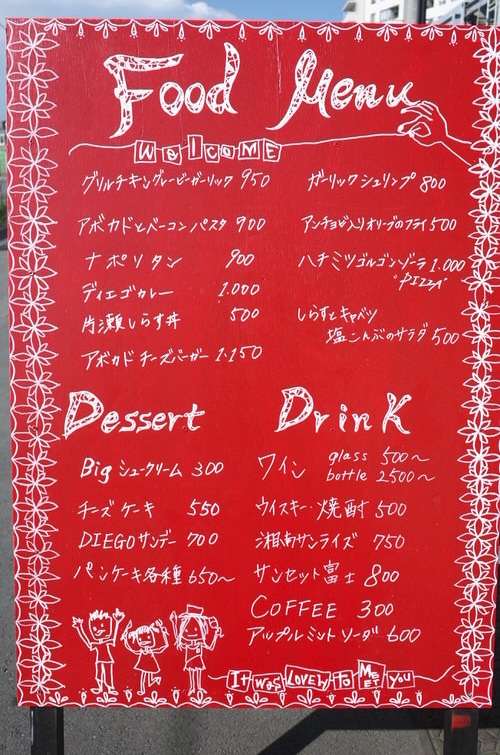 Food Menu
WelcoME
グリルチキングレービーガーリック 950
アボカドとベーコンパスタ 900
ナポリタン 900
ディエゴカレー 1.000
片瀬しらす丼 500
アボカドチーズバーガー 1.150
ガーリックシュリンプ 800
アンチョビ入りオリーブのフライ 500
ハチミツゴルゴンゾーラ 1.000
"PIZZA"
しらすとキャベツ
塩こんぶのサラダ 500
Dessert
Big シュークリーム 300
チーズケーキ 550
DIEGOサンデー 700
パンケーキ各種 650～
DrinK
ワイン glass 500～
bottle 2500～
ウイスキー・焼酎 500
湘南サンライズ 750
サンセット富士 800
COFFEE 300
アップルミントソーダ 600
It was LOVELY to MEET you